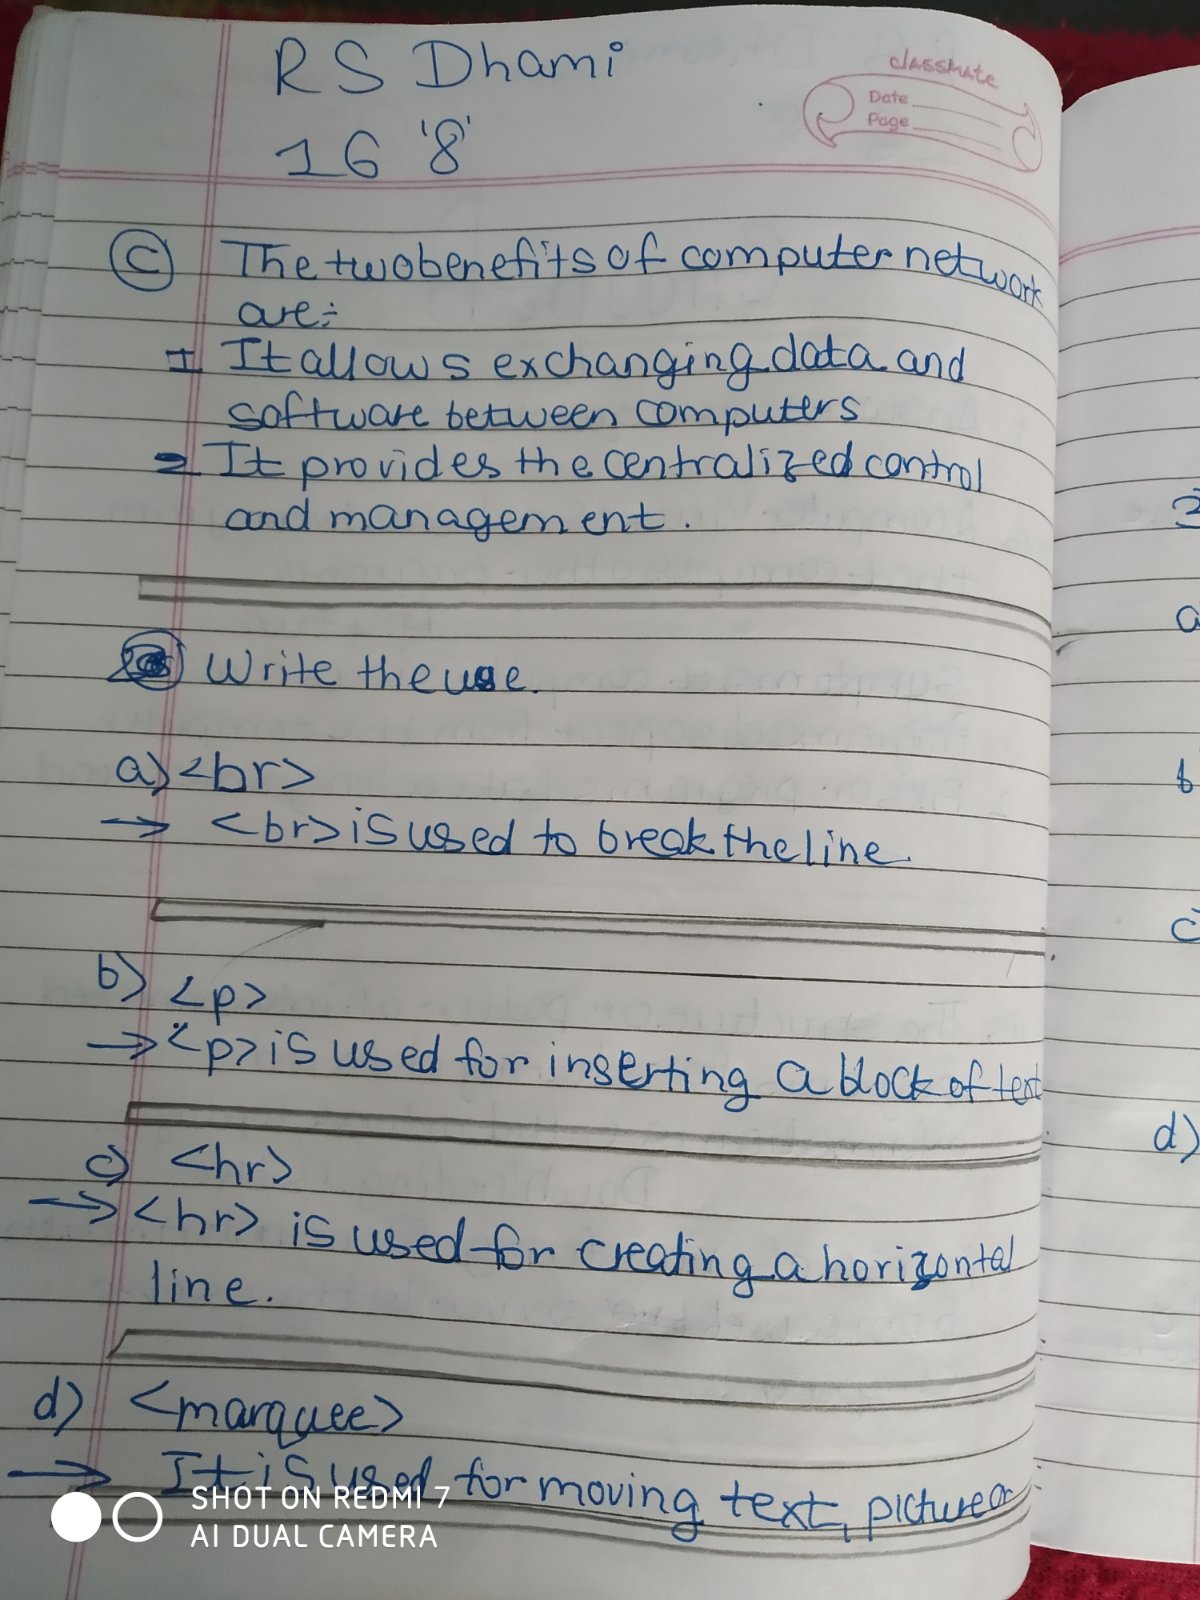 RS Dhami
16 '8'
classmate
Date
Page
C The two benefits of computer network
are:-
1 It allows exchanging data and
software between computers
2 It provides the centralized control
and management.
Write the use.
a) <br>
→ <br> is used to break the line.
b) <p>
→ <p> is used for inserting a block of text
c) <hr>
→ <hr> is used for creating a horizontal
line.
d) <marquee>
→ It is used for moving text, picture or
SHOT ON REDMI 7
AI DUAL CAMERA
3
a
b
c
d)